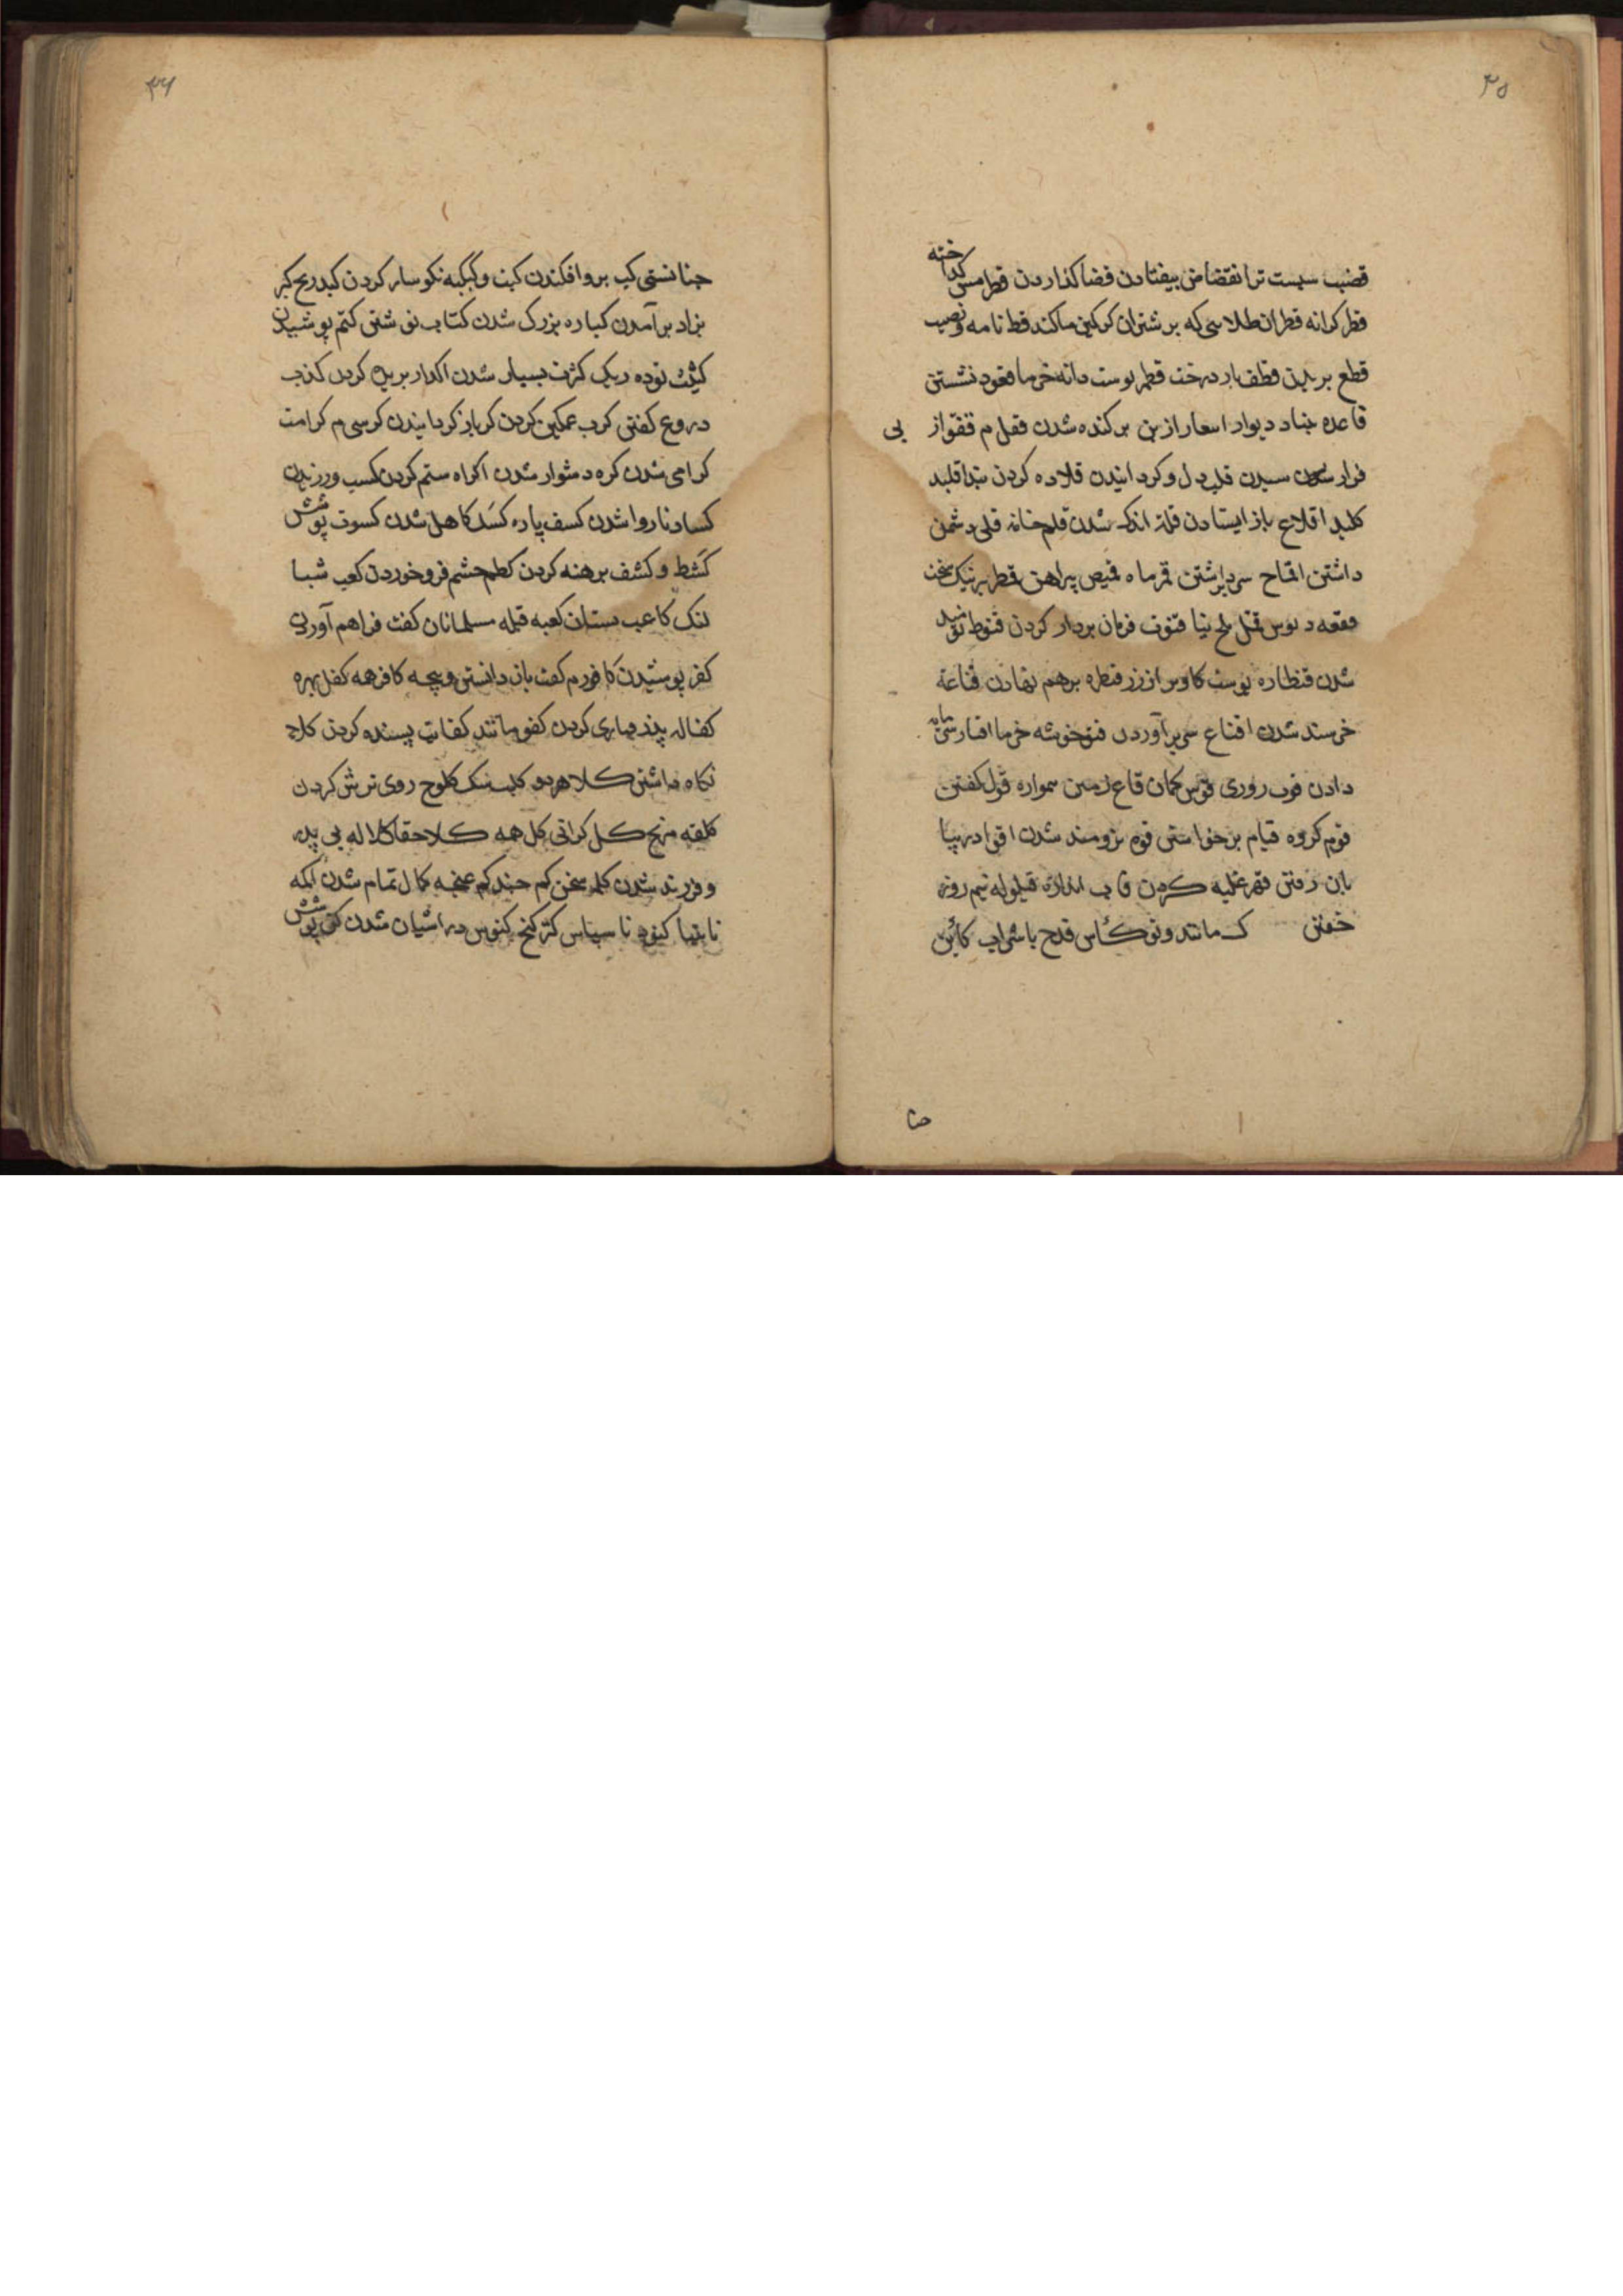 ۳۵
قضب سبست تر انقضاض بیفتادن قضا کذاردن قطر مس کداخته
قطر کرانه قطران طلاسی که بر شتران کرکین ماکند قط نامه ونصیب
قطع بریدن قطف بار درخت قطمیر پوست دانه خرما قعود نشستن
قاعده بنیاد دیوار اسعار از بن برکنده شدن قفل م قفو از پی
فرار سیدن قلب دل وکردانیدن قلاده کردن بند اقلید
کلید اقلاع باز ایستادن قلة اندک شدن قلم خانه قلی دشمن
داشتن اقماح سر برداشتن قمر ماه قمیص پیراهن قمطریر نیک سخت
مقمعه دبوس قمل ملخ بنیا قنوت فرمان بردار کردن قنوط نومید
شدن قنطاره پوست کاو پر از زر قنطره برهم نهادن قناعة
خرسند شدن اقناع سر برآوردن قنو خوشه خرما اقنا رسمایه
دادن قوت روزی قوس کمان قاع زمین هموار قول کفتن
قوم کروه قیام برخواستن قوة نرومند شدن اقوا در بیابان
رفتن قهر غلبه کردن قاب اندازه قیلوله نیم روز
خفتن ک مانند وتو کأس قدح با شراب کأین
جنا
۳۶
جنانستی کب بروافکندن کبت وکبکبه نکوسار کردن کبد رنج کبر
بزاد برآمدن کباره بزرک شدن کتاب نوشتن کتم پوشیدن
کثیب توده ریک کثرت بسیار شدن اکدار بریده کردن کذب
دروغ کفتن کرب غمکین کردن کر باز کردانیدن کرسی م کرامت
کرامی شدن کره دشوار شدن اکراه ستم کردن کسب ورزیدن
کساد ناروا شدن کسف پاره کسل کاهل شدن کسوت پوشش
کشط وکشف برهنه کردن کظم خشم فروخوردن کعب شتا
لنک کاعب پستان کعبه قبله مسلمانان کفت فراهم آوردن
کفر پوشیدن کافور م کفت باز داشتن وبچه کافر همه کفل بهره
کفاله پذیرفتاری کردن کفو مانند کفایت بسنده کردن کلاء
نکاه داشتن کلا هردو کلب سک کلوح روی ترش کردن
کلفه رنج کل کرانی کل همه کلا حقا کلاله بی پدر
وفرزند شدن کلمه سخن کم جند کم غنجه کمال تمام شدن اکمه
نابینا کنود ناسپاس کنز کنج کنوس در اشیان شدن کن پوشش